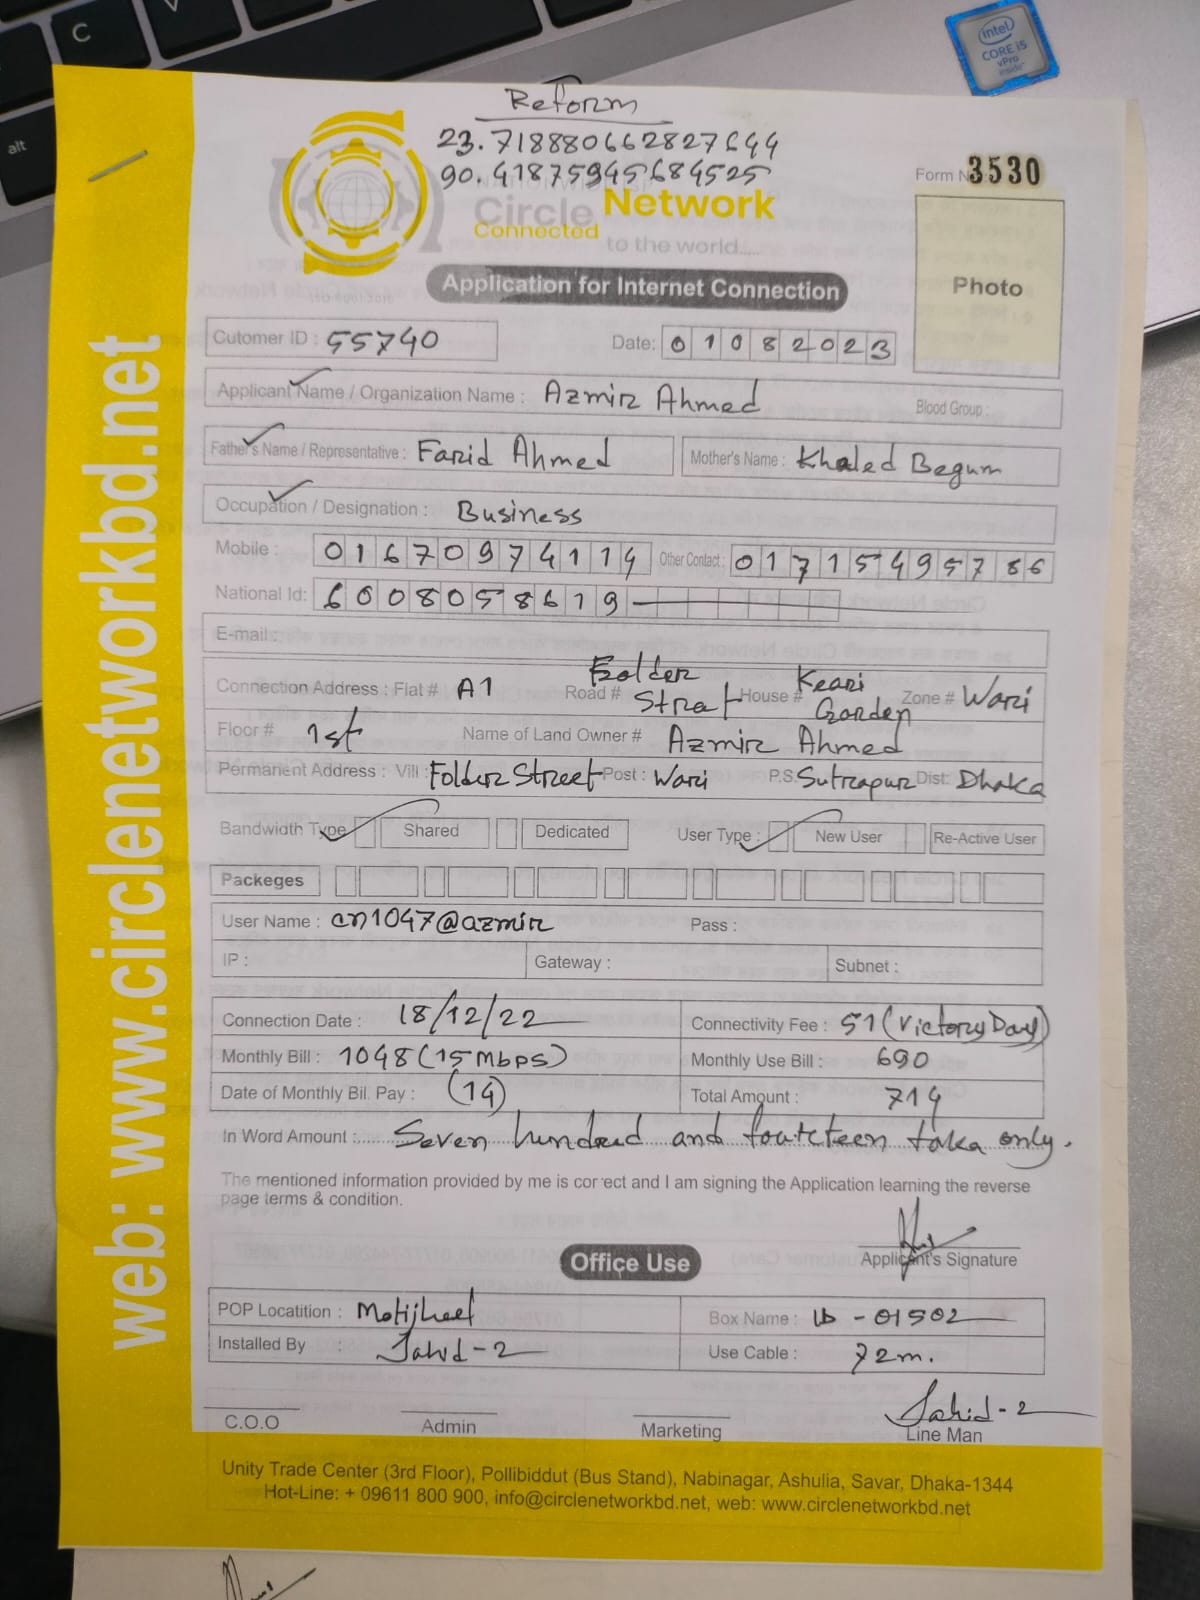 C
alt
intel
CORE i5
vPro
inside
Reform
23.718880662827644
90.41875945684525
Form N 3530
Circle Network
Connected to the world.....
Photo
Application for Internet Connection
Cutomer ID : 55740 Date: 01082023
Applicant Name / Organization Name : Azmir Ahmed Blood Group :
Father's Name / Representative : Farid Ahmed Mother's Name : Khaled Begum
Occupation / Designation : Business
Mobile : 01670974114 Other Contact : 01715495786
National Id: 6008058619
E-mail :
Connection Address : Flat # A1 Road # Folder Strat House # Keari Garden Zone # Wari
Floor # 1st Name of Land Owner # Azmir Ahmed
Permanent Address : Vill : Folder Street Post : Wari P.S. Sutrapur Dist: Dhaka
Bandwidth Type Shared Dedicated User Type : New User Re-Active User
Packeges
User Name : cn1047@azmir Pass :
IP : Gateway : Subnet :
Connection Date : 18/12/22 Connectivity Fee : 51 (Victory Day)
Monthly Bill : 1048 (15 Mbps) Monthly Use Bill : 690
Date of Monthly Bil. Pay : (14) Total Amount : 714
In Word Amount :..... Seven hundred and fourteen taka only.
The mentioned information provided by me is correct and I am signing the Application learning the reverse
page terms & condition.
Applicant's Signature
Office Use
POP Locatition : Motijheel Box Name : LD - 01502
Installed By : Jahid-2 Use Cable : 72m.
Jahid-2
C.O.O Admin Marketing Line Man
Unity Trade Center (3rd Floor), Pollibiddut (Bus Stand), Nabinagar, Ashulia, Savar, Dhaka-1344
Hot-Line: + 09611 800 900, info@circlenetworkbd.net, web: www.circlenetworkbd.net
web: www.circlenetworkbd.net